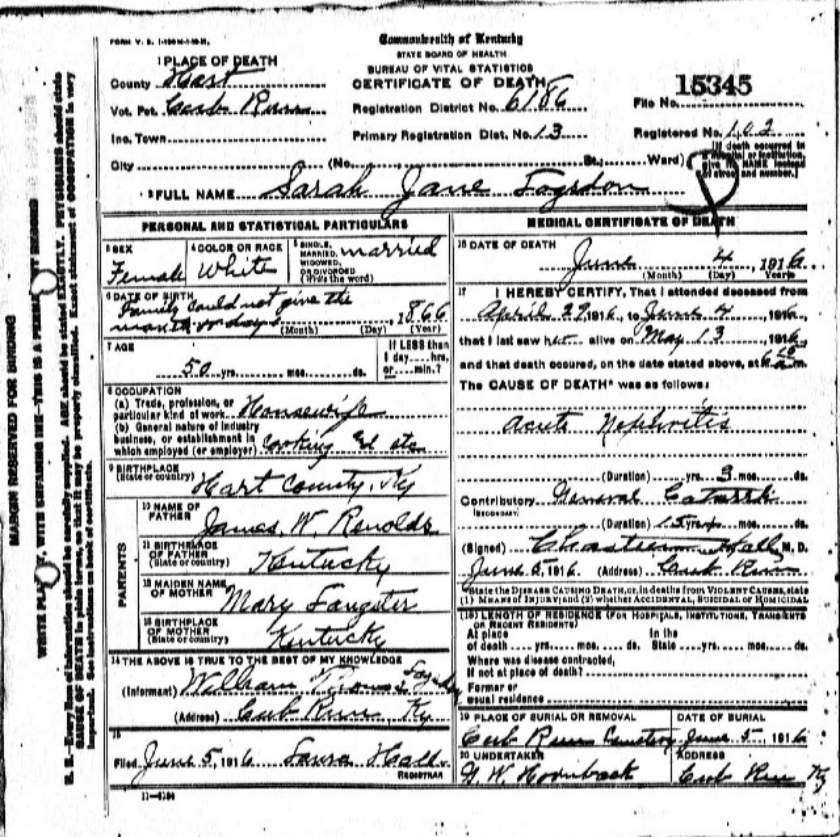 FORM V. S.
Commonwealth of Kentucky
STATE BOARD OF HEALTH
BUREAU OF VITAL STATISTICS
CERTIFICATE OF DEATH
1 PLACE OF DEATH
County Hart
Vot. Pct. Cub Run
Inc. Town
City (No. St.; Ward)
Registration District No. 6186
Primary Registration Dist. No. 13
File No. 15345
Registered No. 102
[If death occurred in a hospital or institution, give its NAME instead of street and number.]
2 FULL NAME Sarah Jane Logsdon
PERSONAL AND STATISTICAL PARTICULARS
3 SEX Female
4 COLOR OR RACE White
5 SINGLE, MARRIED, WIDOWED, OR DIVORCED (Write the word) married
6 DATE OF BIRTH Family could not give the
month or day, 1866
(Month) (Day) (Year)
7 AGE
50 yrs. mos. ds.
If LESS than 1 day hrs. or min.?
8 OCCUPATION
(a) Trade, profession, or
particular kind of work Housewife
(b) General nature of industry
business, or establishment in
which employed (or employer) Cooking etc
9 BIRTHPLACE
(State or country) Hart County, Ky
PARENTS
10 NAME OF FATHER James W. Renolds
11 BIRTHPLACE OF FATHER (State or country) Kentucky
12 MAIDEN NAME OF MOTHER Mary Sangster
13 BIRTHPLACE OF MOTHER (State or country) Kentucky
14 THE ABOVE IS TRUE TO THE BEST OF MY KNOWLEDGE
(Informant) William Thomas Logsdon
(Address) Cub Run Ky
15
Filed June 5, 1916 Laura Hall
REGISTRAR
MEDICAL CERTIFICATE OF DEATH
16 DATE OF DEATH
June 4, 1916
(Month) (Day) (Year)
17 I HEREBY CERTIFY, That I attended deceased from
April 29, 1916, to June 4, 1916
that I last saw her alive on May 13, 1916,
and that death occured, on the date stated above, at m.
The CAUSE OF DEATH* was as follows:
Acute Nephritis
(Duration) yrs. 3 mos. ds.
Contributory General Catarrh
(SECONDARY)
(Duration) 15 yrs. mos. ds.
(Signed) Hall, M. D.
June 5, 1916 (Address) Cub Run
*State the DISEASE CAUSING DEATH, or, in deaths from VIOLENT CAUSES, state
(1) MEANS OF INJURY; and (2) whether ACCIDENTAL, SUICIDAL or HOMICIDAL
(18) LENGTH OF RESIDENCE (FOR HOSPITALS, INSTITUTIONS, TRANSIENTS
OR RECENT RESIDENTS)
At place In the
of death yrs. mos. ds. State yrs. mos. ds.
Where was disease contracted,
if not at place of death?
Former or
usual residence
19 PLACE OF BURIAL OR REMOVAL
Cub Run Cemetery
DATE OF BURIAL
June 5, 1916
20 UNDERTAKER
W Hornback
ADDRESS
Cub Run Ky
MARGIN RESERVED FOR BINDING
WRITE PLAINLY, WITH UNFADING INK—THIS IS A PERMANENT RECORD
N. B.—Every item of information should be carefully supplied. AGE should be stated EXACTLY. PHYSICIANS should state
CAUSE OF DEATH in plain terms, so that it may be properly classified. Exact statement of OCCUPATION is very
important. See instructions on back of certificate.